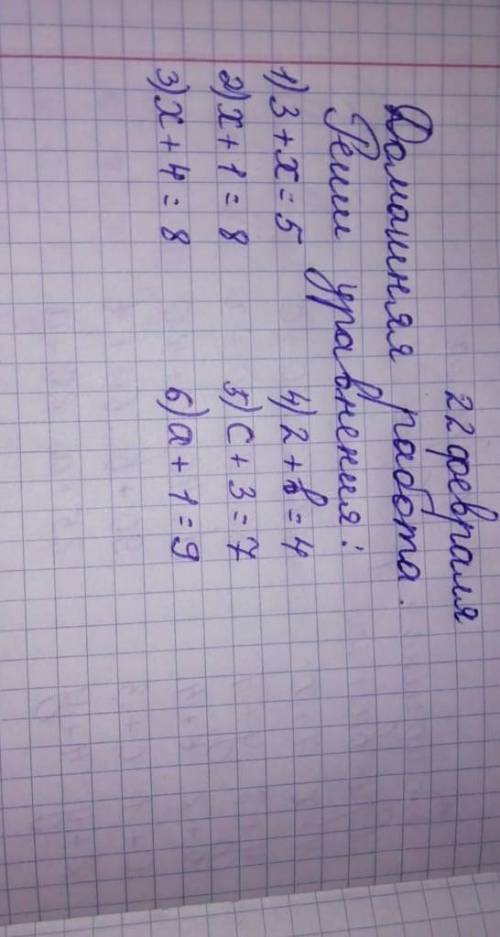 22 февраля
Домашняя работа.
Реши уравнения:
1) 3 + x = 5 4) 2 + b = 4
2) x + 1 = 8 5) c + 3 = 7
3) x + 4 = 8 6) a + 1 = 9